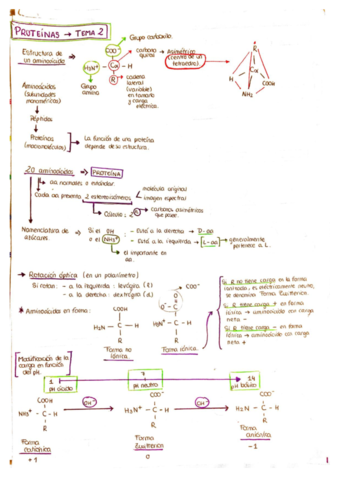 PROTEÍNAS → TEMA 2
Grupo carboxilo.
Estructura de un aminoácido
COO⁻
carbono quiral → Asimétrico (centro de un tetraedro)
H₃N⁺ – Cα – H
R
Grupo amino
cadena lateral (variable) en tamaño y carga eléctrica.
R
Cα
H
NH₂
COOH
Aminoácidos (subunidades monoméricas)
Péptidos
Proteínas (macromoléculas)
La función de una proteína depende de su estructura.
20 aminoácidos → PROTEÍNA
→ aa normales o estándar.
Cada aa presenta 2 estereoisómeros
molécula original
imagen especular
Cálculo: 2ⁿ
carbonos asimétricos que posee.
Nomenclatura de azúcares.
Si el OH o el NH₃⁺
- Está a la derecha → D-aa
- Está a la izquierda → L-aa
generalmente pertenece a L.
El importante en aa.
→ Rotación óptica (en un polarímetro)
Si rotan: - a la izquierda: levógira (l)
- a la derecha: dextrógira (d)
* Aminoácidos en forma:
COOH
H₂N – C – H
R
Forma no iónica
COO⁻
H₃N⁺ – C – H
R
Forma iónica.
COO⁻
Si R no tiene carga en la forma ionizada, es eléctricamente neutro, se denomina Forma Zwitterión
Si R tiene carga + en forma
Si R tiene carga - en forma
Modificación de la carga en función del pH.
1
pH ácido
7
pH neutro
14
pH básico
COOH
NH₃⁺ – C – H
R
Forma catiónica
+1
OH⁻
COO⁻
H₃N⁺ – C – H
R
Forma Zwitterión
0
OH⁻
COO⁻
H₂N – C – H
R
Forma aniónica
-1